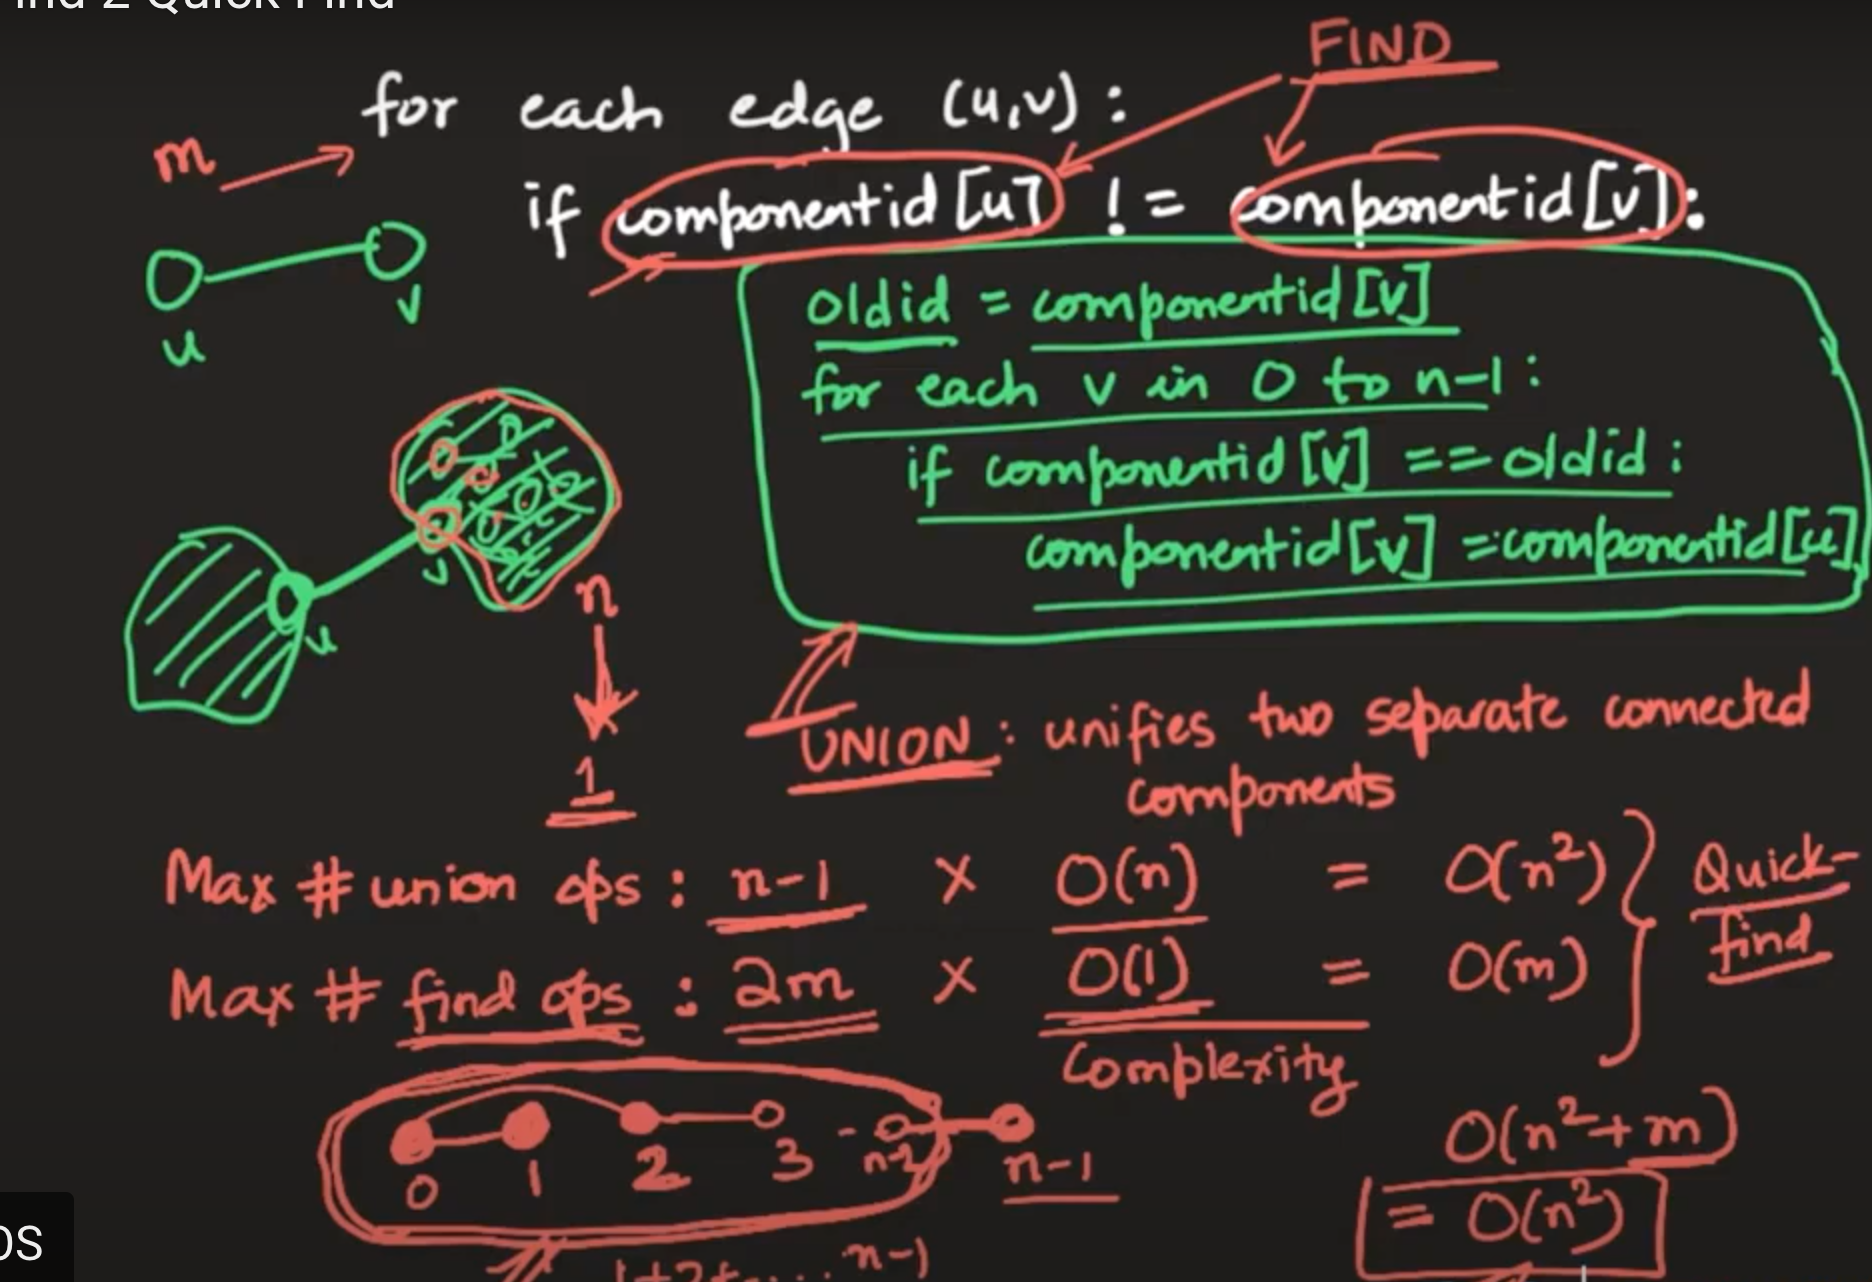 Quick Find
FIND
for each edge (u,v) :
m
if componentid[u] != componentid[v]:
u
v
oldid = componentid[v]
for each v in 0 to n-1 :
if componentid[v] == oldid :
componentid[v] = componentid[u]
v
u
n
1
UNION : unifies two separate connected
components
Max # union ops : n-1 X O(n) = O(n²)
Max # find ops : 2m X O(1) = O(m)
Quick-
find
Complexity
0 1 2 3 - n-2 n-1
O(n²+m)
= O(n²)
1+2+.... n-1)